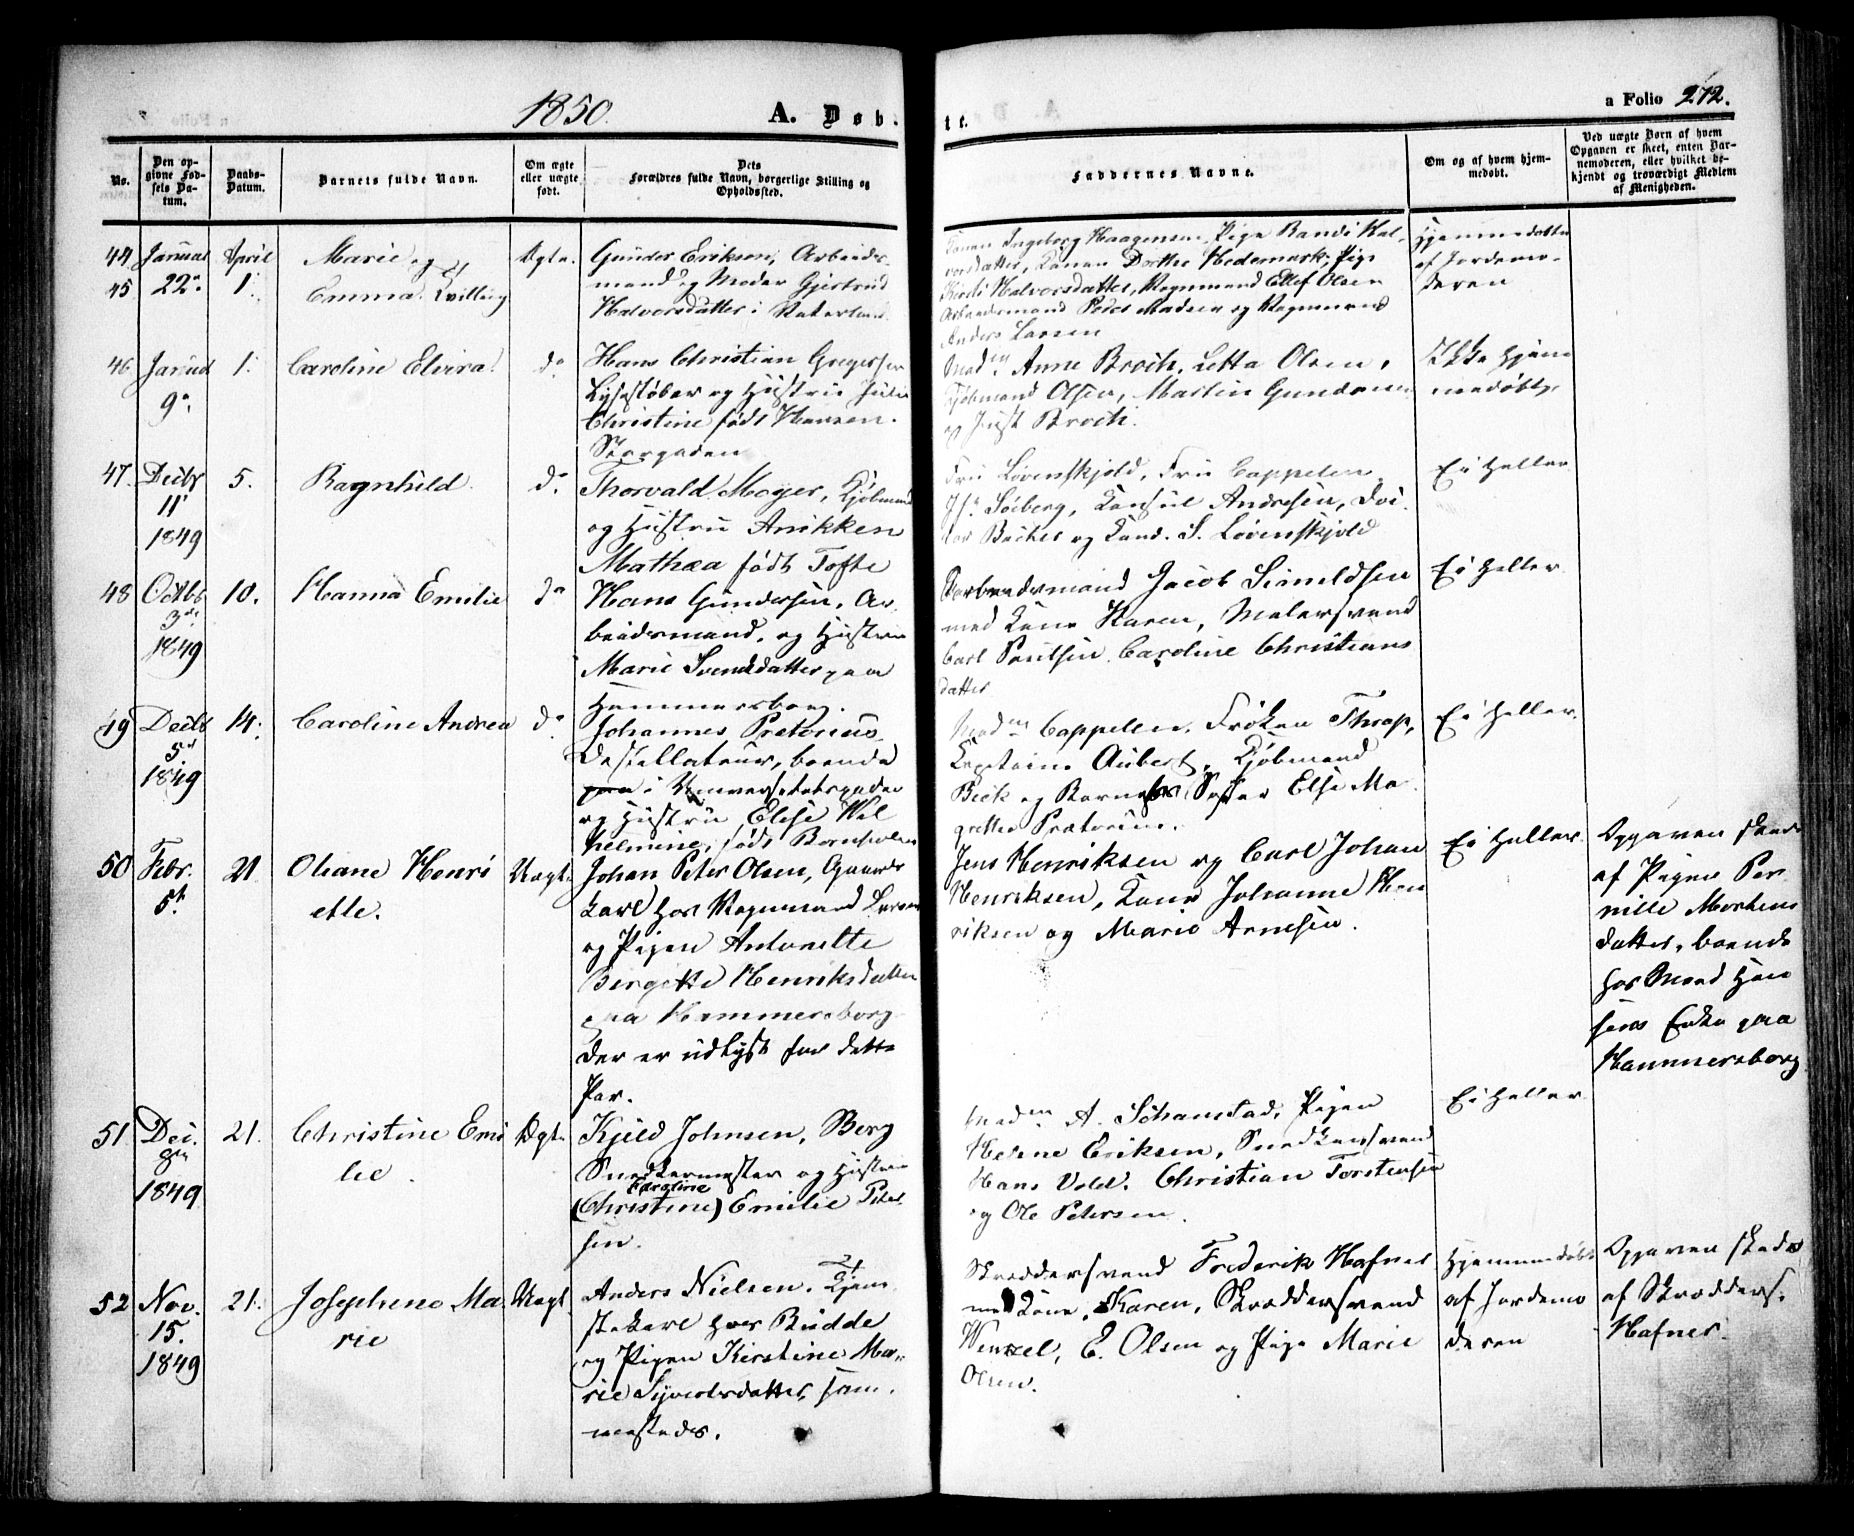 1850.
A. Døb-
te.
a Folio 272.
No.
Den op-
givne Fød-
sels Da-
tum.
Daabs-
Datum.
Barnets fulde Navn.
Om ægte
eller uægte
født.
Dets
Forældres fulde Navn, borgerlige Stilling og
Opholdssted.
Faddernes Navne.
Om og af hvem hjem-
medøbt.
Ved uægte Børn af hvem
Opgaven er skeet, enten Bar-
nemoderen, eller hvilket be-
kjendt og troværdigt Medlem
af Menigheden.
44
45
Januar
22de
April
1.
Marie og
Emma. Tvilling
Ægte.
Gunder Eriksen, Arbeids-
mand og Moder Gjertrud
Halvorsdatter i
Konen Ingeborg Haagensen, Pige Randi Hal-
vorsdatter, Konen Dorthe Hedemark, Pige
Kirsti Halvorsdatter, Vognmand Ellef Olsen
Arbeidsmand Peder Madsen og Vognmand
Anders Larsen
Hjemmedøbte
af Jordemo-
deren
46
Januar
9de
1.
Caroline Elvira
do
Hans Christian Gregersen
Lysestøber og Hustru Julie
Christine født Hansen.
Storgaden
Madm Anne Broch, Letta Olsen,
Kjøbmand Olsen, Martin Gundersen
og Just Broch.
Ikke hjem
medøbt.
47.
Decbr
11
1849
5.
Ragnhild
do
Thorvald Meyer, Kjøbmand
og Hustru Anikken
Mathea født Tofte
Fru Løvenskjold, Fru Cappelen
Jfr Søiberg, Konsul Andresen, Doc-
tor Backer og Cand. S. Løvenskjold
Ei heller
48
Octbr
3de
1849
10.
Hanna Emilie
do
Hans Gundersen, Ar-
beidsmand, og Hustru
Marie Svendsdatter paa
Hammersborg.
Arbeidsmand Jacob Simeldsen
med Kone Karen, Malersvend
Carl Poulsen, Caroline Christians
datter
Ei heller.
49
Decbr
5te
1849
14.
Caroline Andrea
do
Johannes Pretorius
Destillateur, boende
paa i Universitetsgaden
og Hustru Elise Wil
helmine, født Bornholm
Madm Cappelen, Frøken Thrap,
Capitaine Aubert, Kjøbmand
Beck og Barnets Søster Else Ma
grethe Prætorius.
Ei heller.
50
Febr.
5te
21
Oliane Henri
ette.
Uægte
Johan Peter Olsen, Gaards
karl hos Vognmand Larsen
og Pigen Antonette
Birgitte Henriksdatter
paa Hammersborg
der er udlyst for dette
Par.
Jens Henriksen og Carl Johan
Henriksen, Kone Johanne Hen
riksen og Marie Arnesen.
Ei heller.
Opgaven skeede
af Pigen Per
nille Mortens
datter, boende
hos Mad Han
sens Enke paa
Hammersborg
51.
Dec.
8de
1849
21.
Christine Emi
lie.
Ægte
Kjeld Johnsen, Berg
Snedkermester og Hustru
Caroline
(Christine) Emilie Peter
sen.
Madm A. Schamstad, Pigen
Helene Eriksen, Snedkersvend
Hans Vold. Christian Torstensen
og Ole Petersen.
Ei heller.
52
Nov.
15.
1849
21.
Josephine Ma
rie
Uægte
Anders Nielsen, Tjene
stekarl hos Budde
og Pigen Kirstine Ma-
rie Syverdsdatter, sam-
mesteds.
Skræddersvend Frederik Hafner
med Kone, Karen, Skræddersvend
Wenzel, E. Olsen og Pige Marie
Olsen.
Hjemmedøbt
af Jordemo
deren
Opgaven skede
af Skrædders.
Hafner.